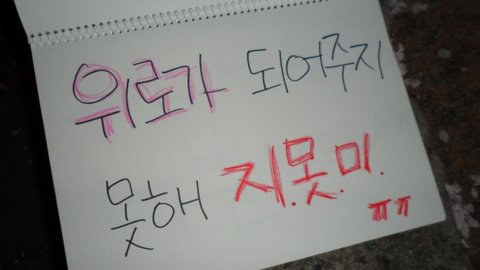 위로가 되어주지
못해 지.못.미.
ㅠㅠ